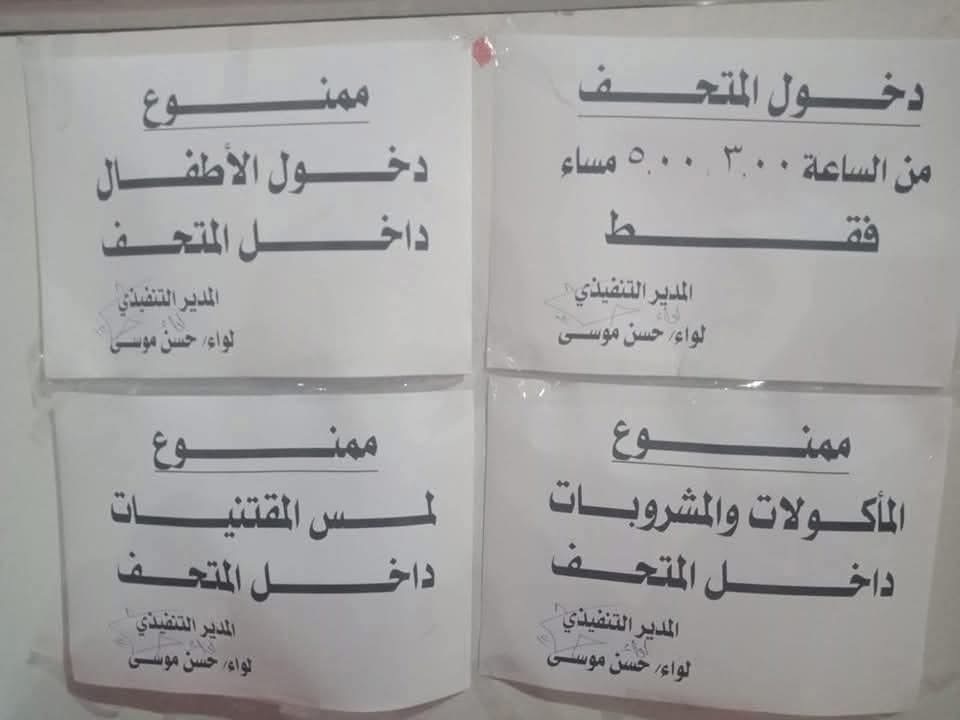 دخول المتحف
من الساعة ٣.٠٠ ٥.٠٠ مساء
فقط
المدير التنفيذي
لواء/ حسن موسى
ممنوع
دخول الأطفال
داخل المتحف
المدير التنفيذي
لواء/ حسن موسى
ممنوع
المأكولات والمشروبات
داخل المتحف
المدير التنفيذي
لواء/ حسن موسى
ممنوع
لمس المقتنيات
داخل المتحف
المدير التنفيذي
لواء/ حسن موسى